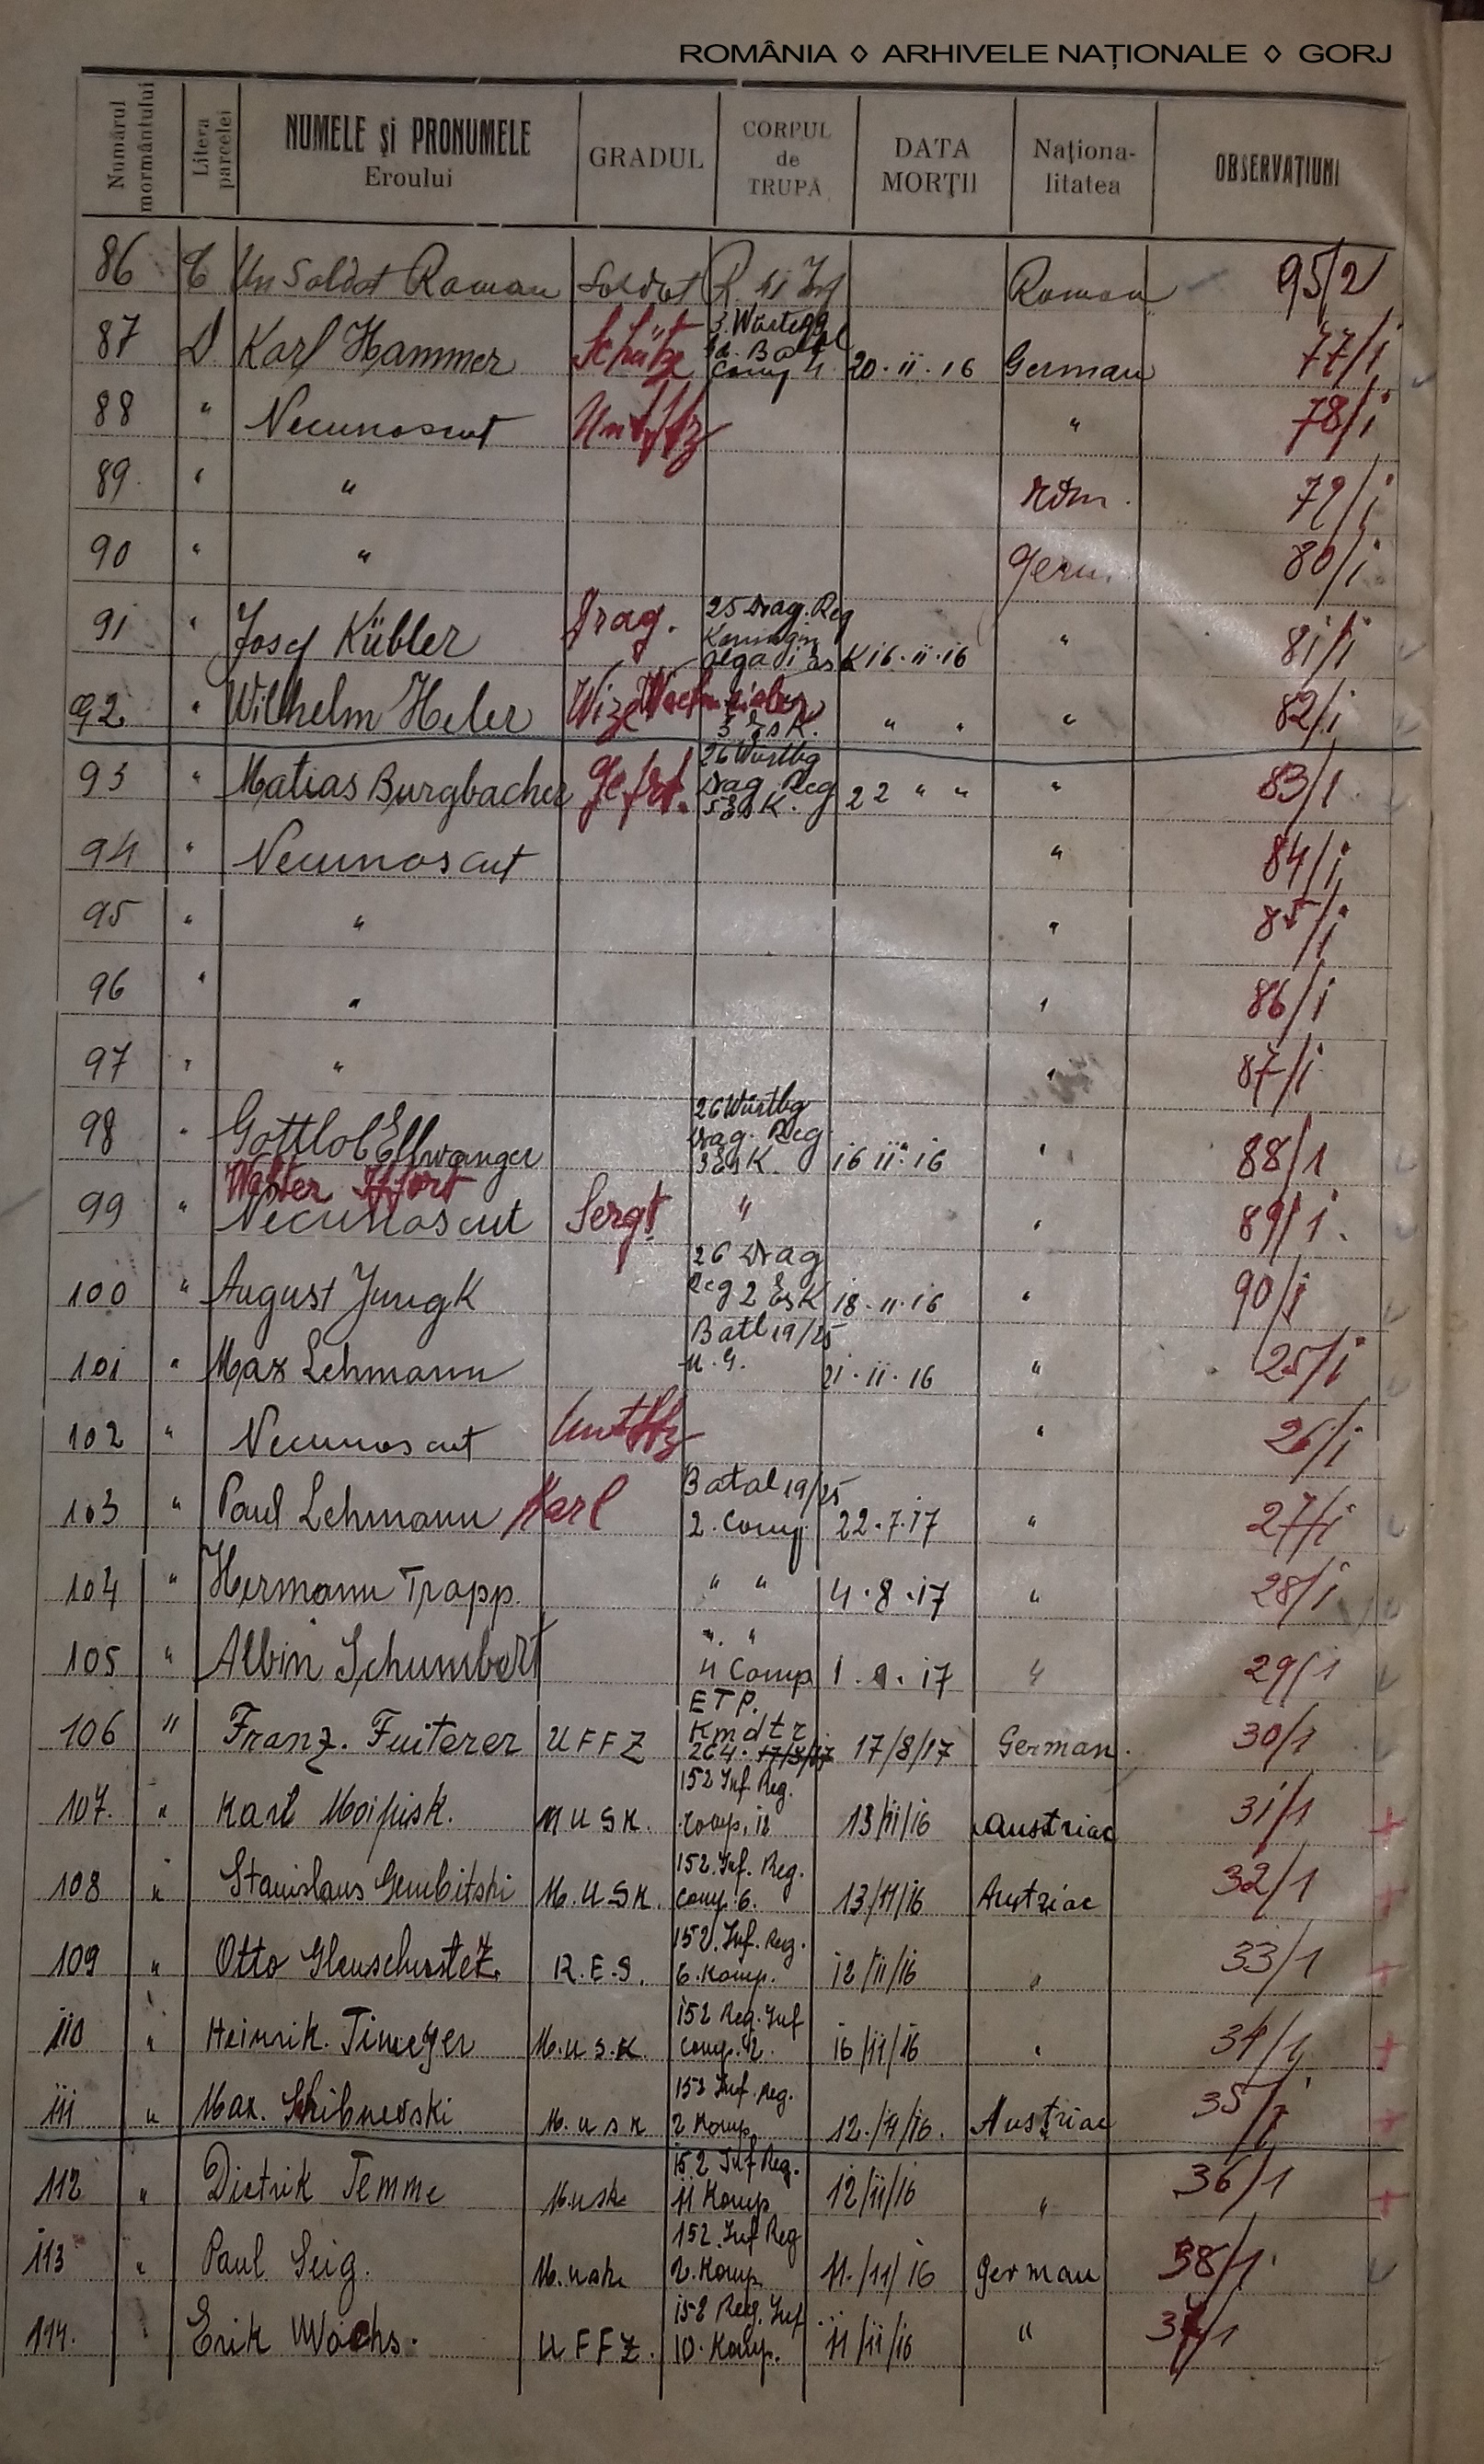 ROMÂNIA ◊ ARHIVELE NAȚIONALE ◊ GORJ
Numărul mormântului Litera parcelei NUMELE și PRONUMELE Eroului GRADUL CORPUL de TRUPĂ DATA MORȚII Naționa-litatea OBSERVAȚIUNI
86 C Un Soldat Roman Soldat R. Inf Roman 95/2
87 D Karl Hammer Schütze 3. Comp 4. 20.ii.16 German 77/i
88 " Necunoscut Untffz " 78/i
89 " " rom. 79/i
90 " " germ. 80/i
91 " Josef Kübler Drag. 25 Drag. Reg Olga i Esk 16.ii.16 " 81/i
92 " Wilhelm Heler Wize Wachmeister 3 Esk. " " " 82/i
93 " Matias Burgbacher Gefrt. 26 Würtbg Drag. Reg 5 Esk. 22 " " " 83/1
94 " Necunoscut " 84/i
95 " " " 85/i
96 " " " 86/i
97 " " " 87/i
98 " Gottlob Ellwanger 26 Würtbg Drag. Reg 3 Esk. 16 ii.16 " 88/1
Walter Iffort
99 " Necunoscut Sergt " " 89/1.
100 " August Jungk 26 Drag Reg 2 Esk 18.11.16 " 90/i
101 " Max Lehmann Batl 19/25 21.ii.16 " 25/i
102 " Necunoscut Untffz " 26/i
103 " Paul Lehmann Karl Batal 19/25 2. Comp 22.7.17 " 27/i
104 " Hermann Trapp. " " 4.8.17 " 28/i
105 " Albin Schumbert " " 4 Comp 1.9.17 " 29/1
106 " Franz. Fuiterer UFFZ ETP. Kmdtr. 264. 17/8/17 17/8/17 German. 30/1
107. " Karl M.U.S.K. 152 Inf. Reg. Comp. 12 13/11/16 Austriac 31/1
108 " Stanislaus Gembitski M.U.S.K. 152. Inf. Reg. Comp. 6. 13/11/16 Austriac 32/1
109 " Otto R.E.S. 152. Inf. Reg. 6. Komp. 12/11/16 " 33/1
110 " Heinrik. M.U.S.K. 152 Reg. Inf Comp. 12/. 16/11/16 " 34/1
111 " Max. M.U.S.K 152 Inf. Reg. 2 Komp. 12./11/16. Austriac 35/1
112 " Dietrik Temme Musk 152 Inf Reg. 11 Komp 12/11/16 " 36/1
113 " Paul Seig. Musk 152. Inf Reg 2. Komp. 11./11/16 German 38/1
114. Erik Wachs. UFFZ. 152 Reg. Inf 10. Komp. 11/11/16 " 37/1